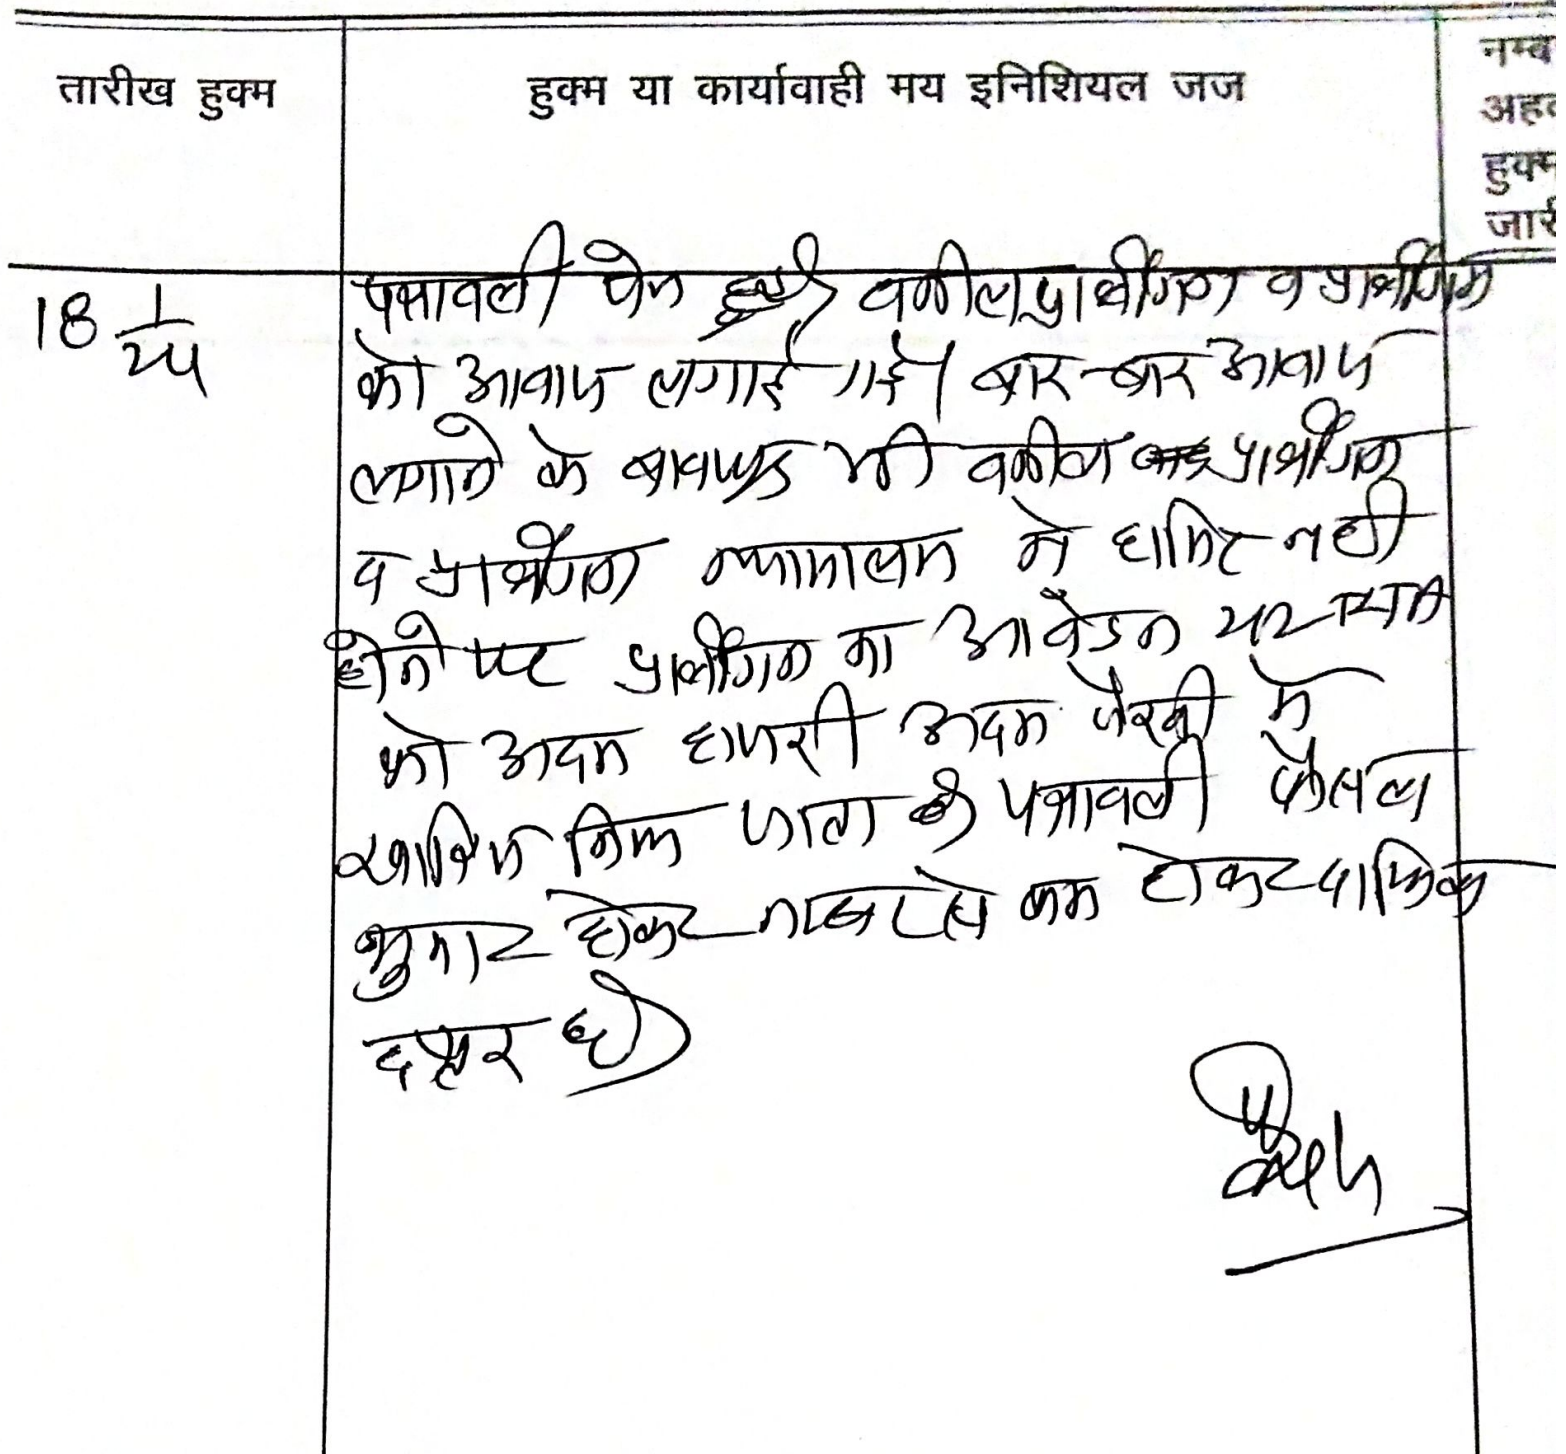 तारीख हुक्म
हुक्म या कार्यावाही मय इनिशियल जज
नम्ब
अहव
हुक्म
जारी
18 1/24
पत्रावली पेश हुई। वकील प्रार्थीगण व प्रार्थीगण
को आवाज लगाई गई। बार-बार आवाज
लगाने के बावजूद भी वकील प्रार्थीगण
व प्रार्थीगण न्यायालय में हाजिर नही
होने पर प्रार्थीगण का आवेदन
को अदम हाजरी अदम पैरवी में
खारिज किया जाता है पत्रावली फैसल
शुमार होकर नम्बर से कम होकर दाखिल
दफ्तर हो